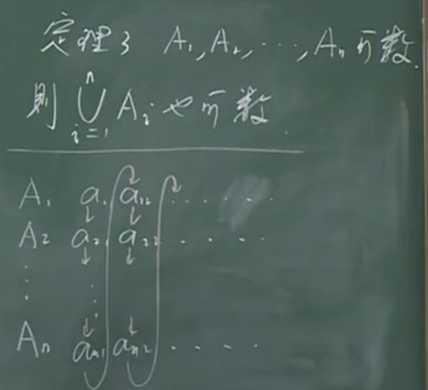 定理3 A₁,A₂,⋯,Aₙ可数.
则 ⋃ᵢ₌₁ⁿ Aᵢ也可数.
A₁ a₁₁ a₁₂ ⋯⋯
A₂ a₂₁ a₂₂ ⋯⋯
⋮ ⋮
Aₙ aₙ₁ aₙ₂ ⋯⋯